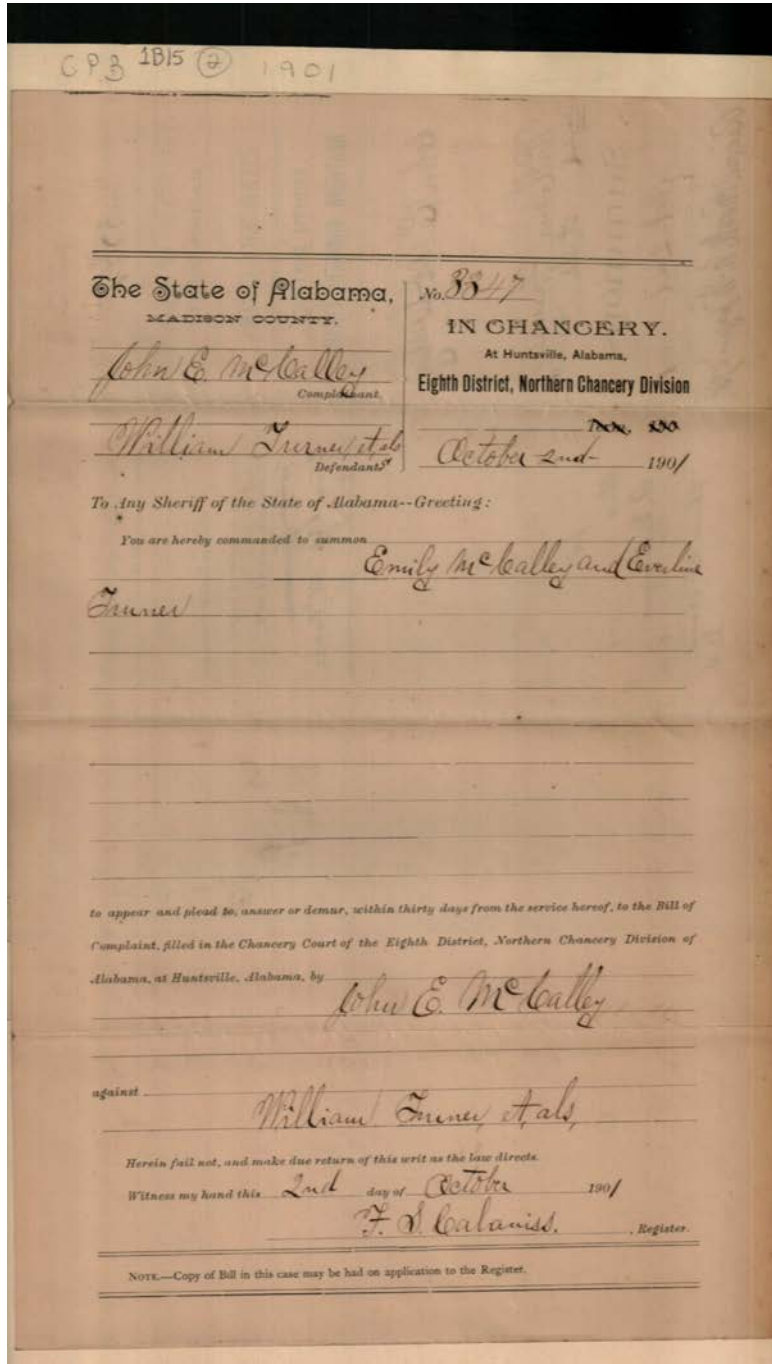 CPB 1B15 (2) 1901
The State of Alabama,
MADISON COUNTY.
John E. McCalley
Complainant.
William Turner, et als
Defendants
No. 3347
IN CHANCERY.
At Huntsville, Alabama,
Eighth District, Northern Chancery Division
Term, 190
October 2nd 1901
To Any Sheriff of the State of Alabama--Greeting:
You are hereby commanded to summon
Emily McCalley and Everline
Turner
to appear and plead to, answer or demur, within thirty days from the service hereof, to the Bill of
Complaint, filled in the Chancery Court of the Eighth District, Northern Chancery Division of
Alabama, at Huntsville, Alabama, by
John E. McCalley
against
William Turner, et, als,
Herein fail not, and make due return of this writ as the law directs.
Witness my hand this 2nd day of October 1901
F. S. Cabaniss. , Register.
NOTE.—Copy of Bill in this case may be had on application to the Register.